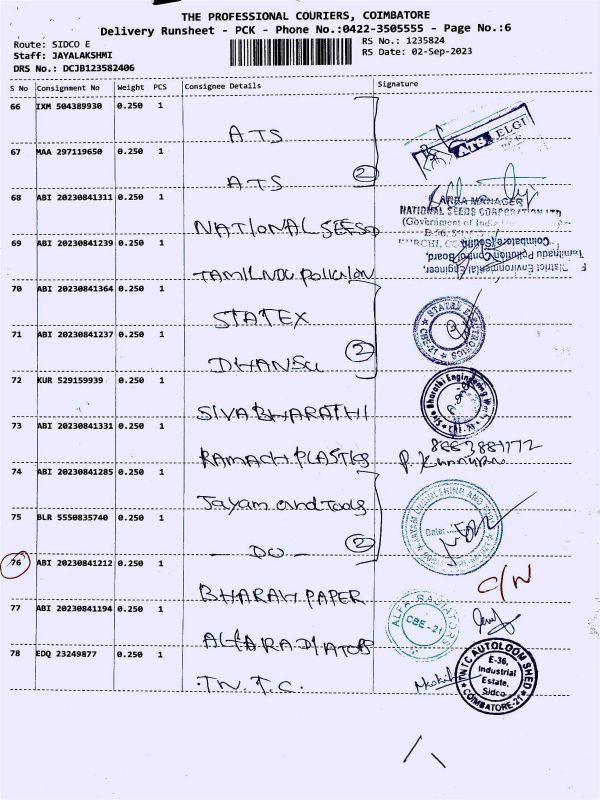 THE PROFESSIONAL COURIERS, COIMBATORE
Delivery Runsheet - PCK - Phone No.:0422-3505555 - Page No.:6
Route: SIDCO E
RS No.: 1235824
Staff: JAYALAKSHMI
RS Date: 02-Sep-2023
DRS No.: DCJB123582406
S No Consignment No Weight PCS Consignee Details Signature
66 IXM 504389930 0.250 1
ATS
ATS ELGI
67 MAA 297119650 0.250 1
ATS
2
68 ABI 20230841311 0.250 1
NATIONAL SEEDS
AREA MANAGER
NATIONAL SEEDS CORPORATION LTD
(Government of India
69 ABI 20230841239 0.250 1
TAMILNDU Pollution
Coimbatore (South)
Tamilnadu Pollution Control Board,
District Environmental Engineer,
70 ABI 20230841364 0.250 1
STATEX
STATEX ELECTRONICS
CBE-21
71 ABI 20230841237 0.250 1
DHANSU
2
72 KUR 529159939 0.250 1
SIVA BHARATHI
Siva Bharathi Engineering Works
73 ABI 20230841331 0.250 1
RAMACH PLASTICS
P.
74 ABI 20230841285 0.250 1
Jayam and Tools
JAYAM ENGINEERING AND TOOLS
75 BLR 5550835740 0.250 1
— DO —
2
Date:
76 ABI 20230841212 0.250 1
BHARAH PAPER
C/N
77 ABI 20230841194 0.250 1
ALFA RADIATORS
ALFA RADIATORS
CBE-21
78 EDQ 23249877 0.250 1
T.N.T.C.
TNTC AUTOLOOM SHED
E-36,
Industrial
Estate,
Sidco
COIMBATORE-21